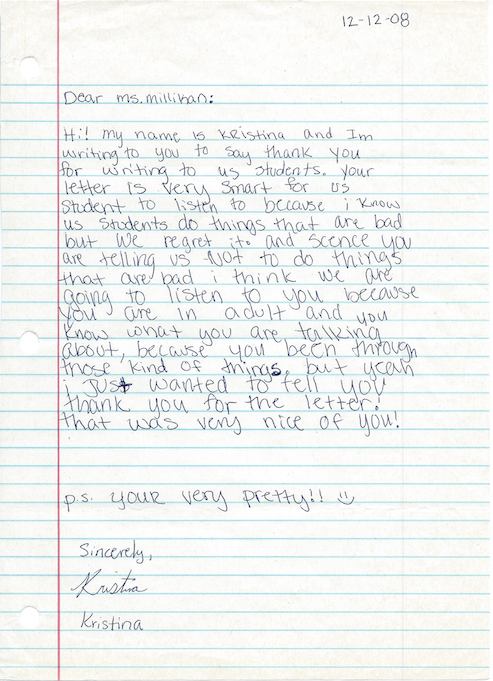 12-12-08
Dear ms. millihan:
Hi! my name is Kristina and Im
writing to you to say thank you
for writing to us students. Your
letter is very smart for us
student to listen to because i know
us students do things that are bad
but we regret it. and scence you
are telling us Not to do things
that are bad i think we are
going to listen to you because
you are in adult and you
know what you are talking
about, because you been through
those kind of things, but yeah
i just wanted to tell you
thank you for the letter!
that was very nice of you!
p.s. your very pretty!! :)
Sincerely,
Kristina
Kristina